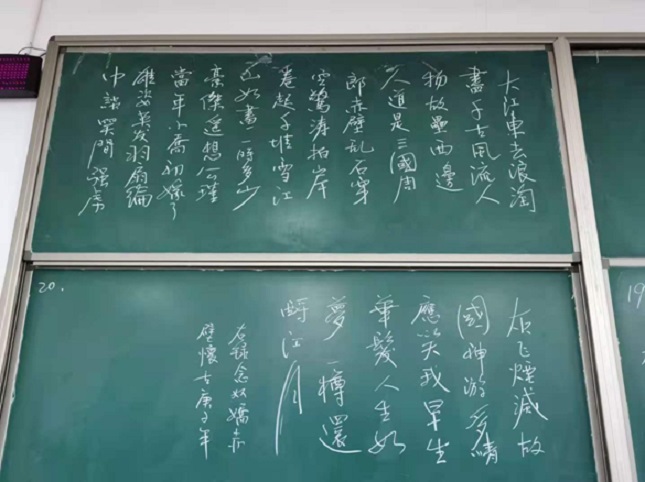 大江東去浪淘
盡千古風流人
物故壘西邊
人道是三國周
郎赤壁乱石穿
空驚濤拍岸
卷起千堆雪江
山如畫一時多少
豪傑遥想公瑾
當年小喬初嫁了
雄姿英发羽扇綸
巾談笑間强虏
20.
灰飞煙滅故
國神游多情
應笑我早生
華髮人生如
夢一樽還
酹江月
右録念奴嬌赤
壁懷古庚子年
19